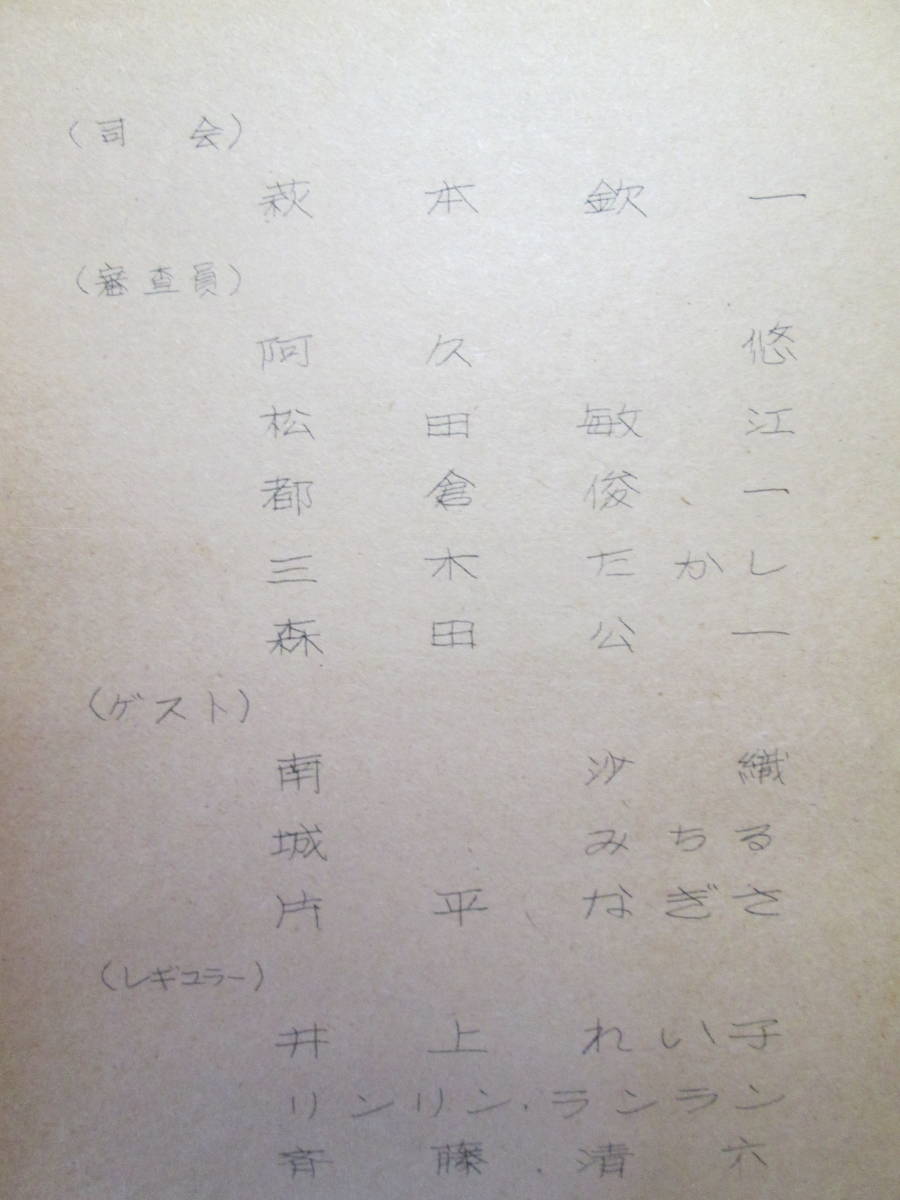 (司会)
萩本欽一
(審査員)
阿久悠
松田敏江
都倉俊一
三木たかし
森田公一
(ゲスト)
南沙織
城みちる
片平なぎさ
(レギュラー)
井上れい子
リンリン・ランラン
斉藤清六